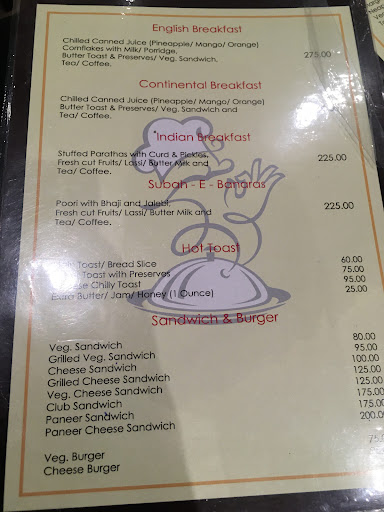 English Breakfast
Chilled Canned Juice (Pineapple/ Mango/ Orange)
Cornflakes with Milk/ Porridge,
Butter Toast & Preserves/ Veg. Sandwich, 275.00
Tea/ Coffee.
Continental Breakfast
Chilled Canned Juice (Pineapple/ Mango/ Orange)
Butter Toast & Preserves/ Veg. Sandwich and
Tea/ Coffee.
Indian Breakfast
Stuffed Parathas with Curd & Pickles, 225.00
Fresh cut Fruits/ Lassi/ Butter Milk and
Tea/ Coffee.
Subah - E - Banaras
Poori with Bhaji and Jalebi, 225.00
Fresh cut Fruits/ Lassi/ Butter Milk and
Tea/ Coffee.
Hot Toast
Toast/ Bread Slice 60.00
Toast with Preserves 75.00
Chilly Toast 95.00
Extra Butter/ Jam/ Honey (1 Ounce) 25.00
Sandwich & Burger
Veg. Sandwich 80.00
Grilled Veg. Sandwich 95.00
Cheese Sandwich 100.00
Grilled Cheese Sandwich 125.00
Veg. Cheese Sandwich 125.00
Club Sandwich 175.00
Paneer Sandwich 175.00
Paneer Cheese Sandwich 200.00
Veg. Burger
Cheese Burger